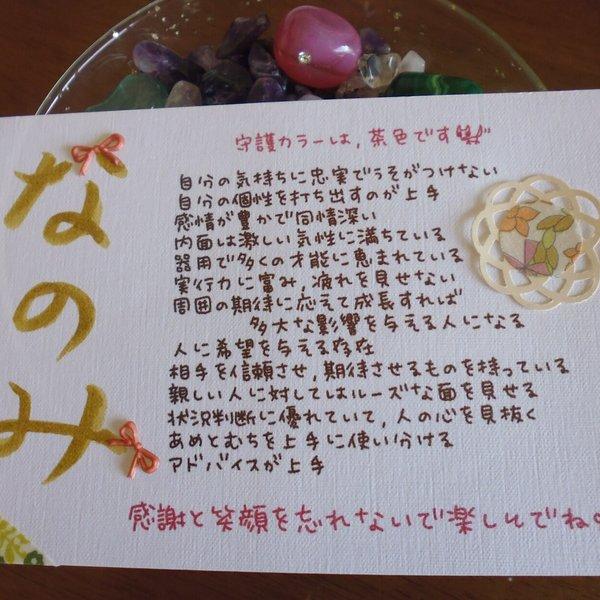 なのみ
守護カラーは,茶色です
自分の気持ちに忠実でうそがつけない
自分の個性を打ち出すのが上手
感情が豊かで同情深い
内面は激しい気性に満ちている
器用で多くの才能に恵まれている
実行力に富み,疲れを見せない
周囲の期待に応えて成長すれば
多大な影響を与える人になる
人に希望を与える存在
相手を信頼させ,期待させるものを持っている
親しい人に対してはルーズな面を見せる
状況判断に優れていて,人の心を見抜く
あめとむちを上手に使い分ける
アドバイスが上手
感謝と笑顔を忘れないで楽しんでね